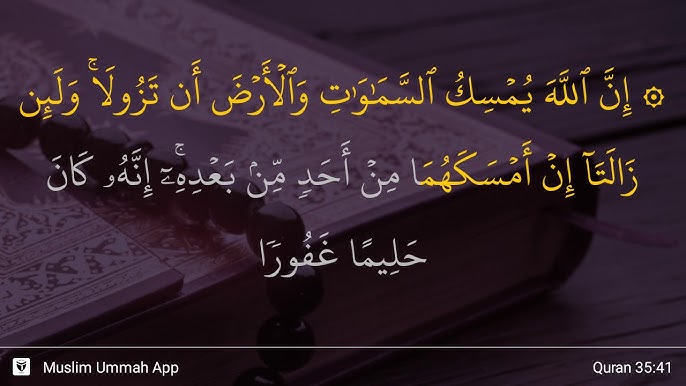 ۞ إِنَّ ٱللَّهَ يُمْسِكُ ٱلسَّمَٰوَٰتِ وَٱلْأَرْضَ أَن تَزُولَا ۚ وَلَئِن
زَالَتَآ إِنْ أَمْسَكَهُمَا مِنْ أَحَدٍ مِّنۢ بَعْدِهِۦٓ ۚ إِنَّهُۥ كَانَ
حَلِيمًا غَفُورًا
Muslim Ummah App
Quran 35:41